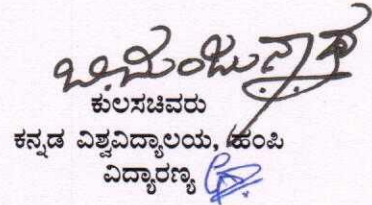 ಬಿ.ಮಂಜುನಾಥ
ಕುಲಸಚಿವರು
ಕನ್ನಡ ವಿಶ್ವವಿದ್ಯಾಲಯ, ಹಂಪಿ
ವಿದ್ಯಾರಣ್ಯ